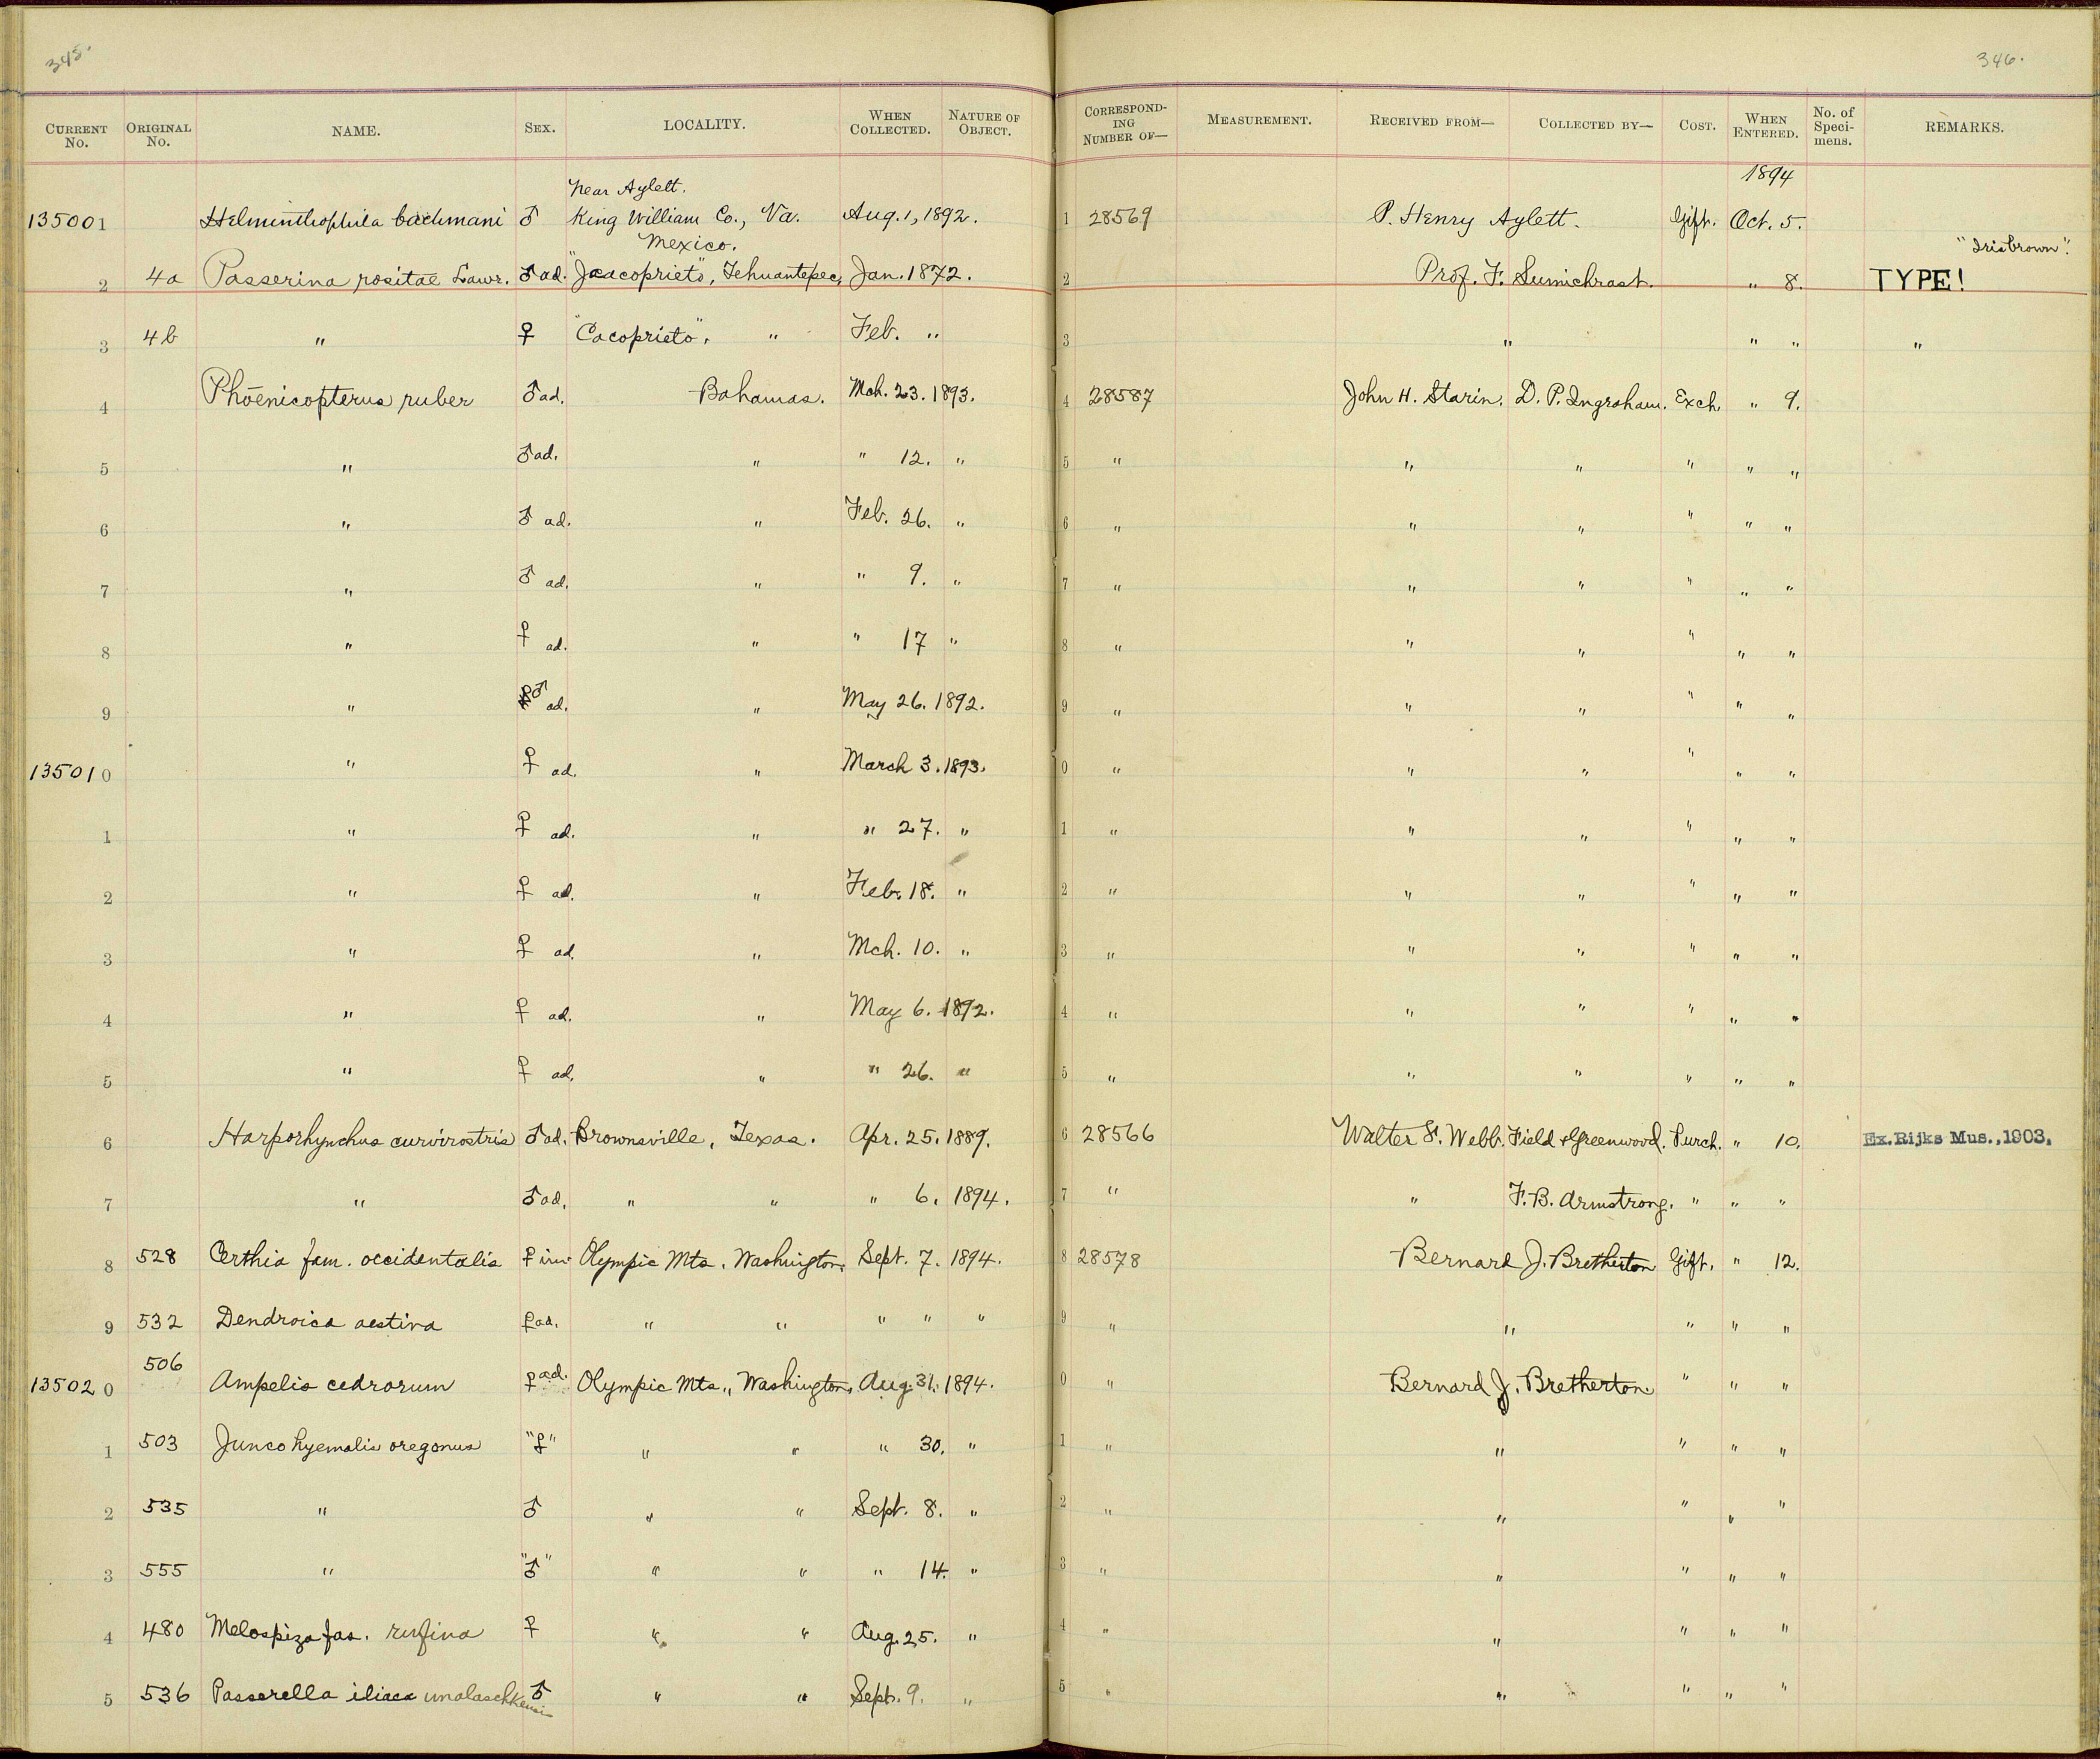 345.
346.
CURRENT No. ORIGINAL No. NAME. SEX. LOCALITY. WHEN COLLECTED. NATURE OF OBJECT. CORRESPONDING NUMBER OF— MEASUREMENT. RECEIVED FROM— COLLECTED BY— COST. WHEN ENTERED. No. of Specimens. REMARKS.
1894
Near Aylett.
135001 Helminthophila bachmani ♂ King William Co., Va. Aug. 1, 1892. 1 28569 P. Henry Aylett. Gift. Oct. 5.
Mexico. "Iris brown".
2 4a Passerina rositae Lawr. ♂ ad. "Jacoprieto", Tehuantepec, Jan. 1872. 2 Prof. F. Sumichrast. " 8. TYPE!
3 4b " ♀ "Cacoprieto", " Feb. " 3 " " " "
4 Phoenicopterus ruber ♂ ad. Bahamas. Mch. 23. 1893. 4 28587 John H. Starin. D. P. Ingraham. Exch. " 9.
5 " ♂ ad. " " 12. " 5 " " " " " "
6 " ♂ ad. " Feb. 26. " 6 " " " " " "
7 " ♂ ad. " " 9. " 7 " " " " " "
8 " ♀ ad. " " 17 " 8 " " " " " "
9 " ♂ ad. " May 26. 1892. 9 " " " " " "
135010 " ♀ ad. " March 3. 1893. 0 " " " " " "
1 " ♀ ad. " " 27. " 1 " " " " " "
2 " ♀ ad. " Feb. 18. " 2 " " " " " "
3 " ♀ ad. " Mch. 10. " 3 " " " " " "
4 " ♀ ad. " May 6. 1892. 4 " " " " " "
5 " ♀ ad. " " 26. " 5 " " " " " "
6 Harporhynchus curvirostris ♂ ad. Brownsville, Texas. Apr. 25. 1889. 6 28566 Walter F. Webb. Field & Greenwood. Purch. " 10. Ex. Rijks Mus., 1903.
7 " ♂ ad. " " " 6. 1894. 7 " " F. B. Armstrong. " " "
8 528 Certhia fam. occidentalis ♀ im Olympic Mts. Washington. Sept. 7. 1894. 8 28578 Bernard J. Bretherton Gift. " 12.
9 532 Dendroica aestiva ♀ ad. " " " " " 9 " " " " "
135020 506 Ampelis cedrorum ♀ ad. Olympic Mts., Washington, Aug. 31. 1894. 0 " Bernard J. Bretherton. " " "
1 503 Junco hyemalis oregonus "♀" " " " 30. " 1 " " " " "
2 535 " ♂ " " Sept. 8. " 2 " " " " "
3 555 " "♂" " " " 14. " 3 " " " " "
4 480 Melospiza fas. rufina ♀ " " Aug. 25. " 4 " " " " "
5 536 Passerella iliaca unalaschkensis ♂ " " Sept. 9. " 5 " " " " "